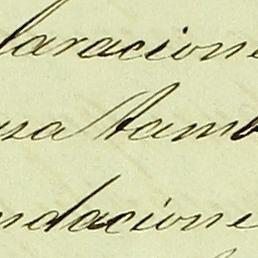 laracione
usa tamb
ndacione